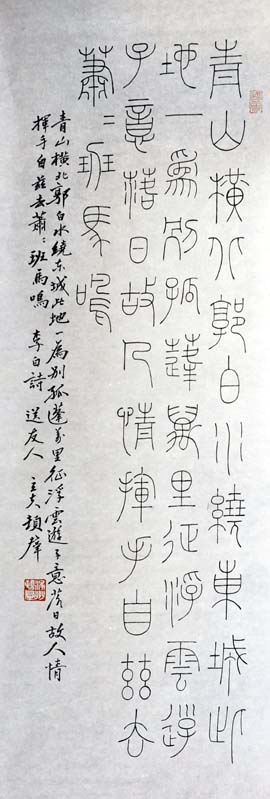 青山橫北郭白水繞東城此
地一為別孤蓬萬里征浮雲遊
子意落日故人情揮手自茲去
蕭〻班馬鳴
青山橫北郭白水繞東城此地一為別孤蓬万里征浮雲遊子意落日故人情
揮手自茲去蕭〻班馬鳴 李白詩 送友人